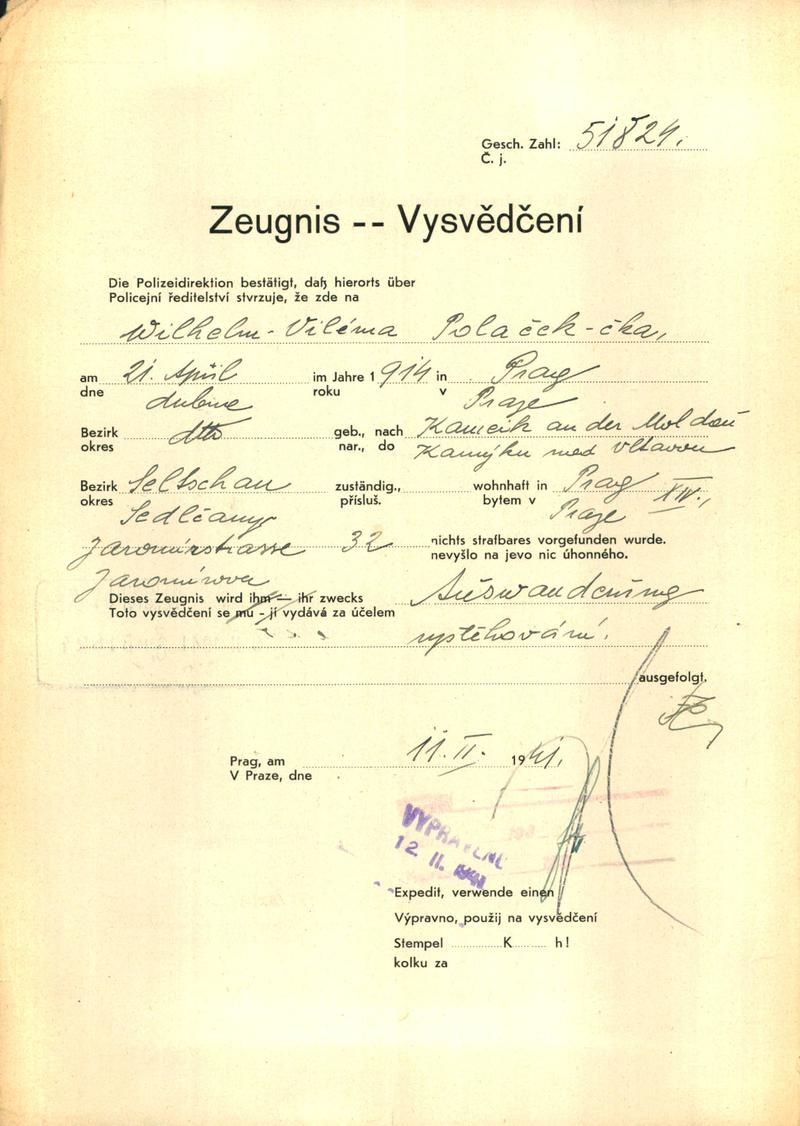 Gesch. Zahl: 51824.
Č. j.
Zeugnis -- Vysvědčení
Die Polizeidirektion bestätigt, daß hierorts über
Policejní ředitelství stvrzuje, že zde na
Wilhelm - Viléma Polaček - čka,
am 21. April im Jahre 1914 in Prag
dne dubna roku v Praze
Bezirk dtto geb., nach Kameik an der Moldau
okres nar., do Kamýku nad Vltavou
Bezirk Seltschan zuständig., wohnhaft in Prag XIV.,
okres Sedlčany přísluš. bytem v Praze
Jaromirstrasse 32 nichts strafbares vorgefunden wurde.
Jaromírova nevyšlo na jevo nic úhonného.
Dieses Zeugnis wird ihm — ihr zwecks Auswanderung
Toto vysvědčení se mu - jí vydává za účelem
vystěhování.
ausgefolgt.
Prag, am 11. II. 1941.
V Praze, dne
VYPRAVENO
12. II. 1941
Expedit, verwende einen
Výpravno, použij na vysvědčení
Stempel K h!
kolku za